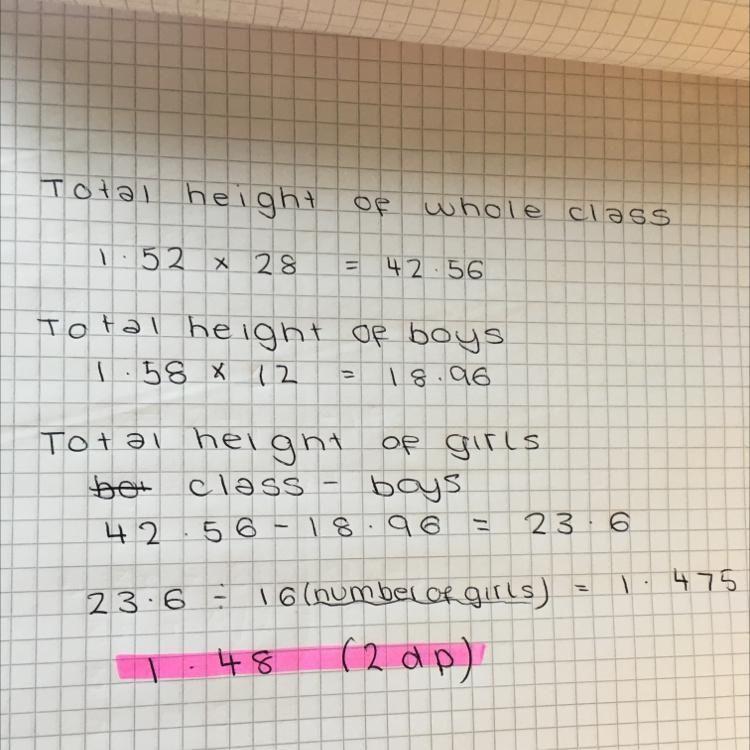 Total height of whole class
1.52 x 28 = 42.56
Total height of boys
1.58 x 12 = 18.96
Total height of girls
class - boys
42.56 - 18.96 = 23.6
23.6 ÷ 16 (number of girls) = 1.475
1.48 (2 dp)